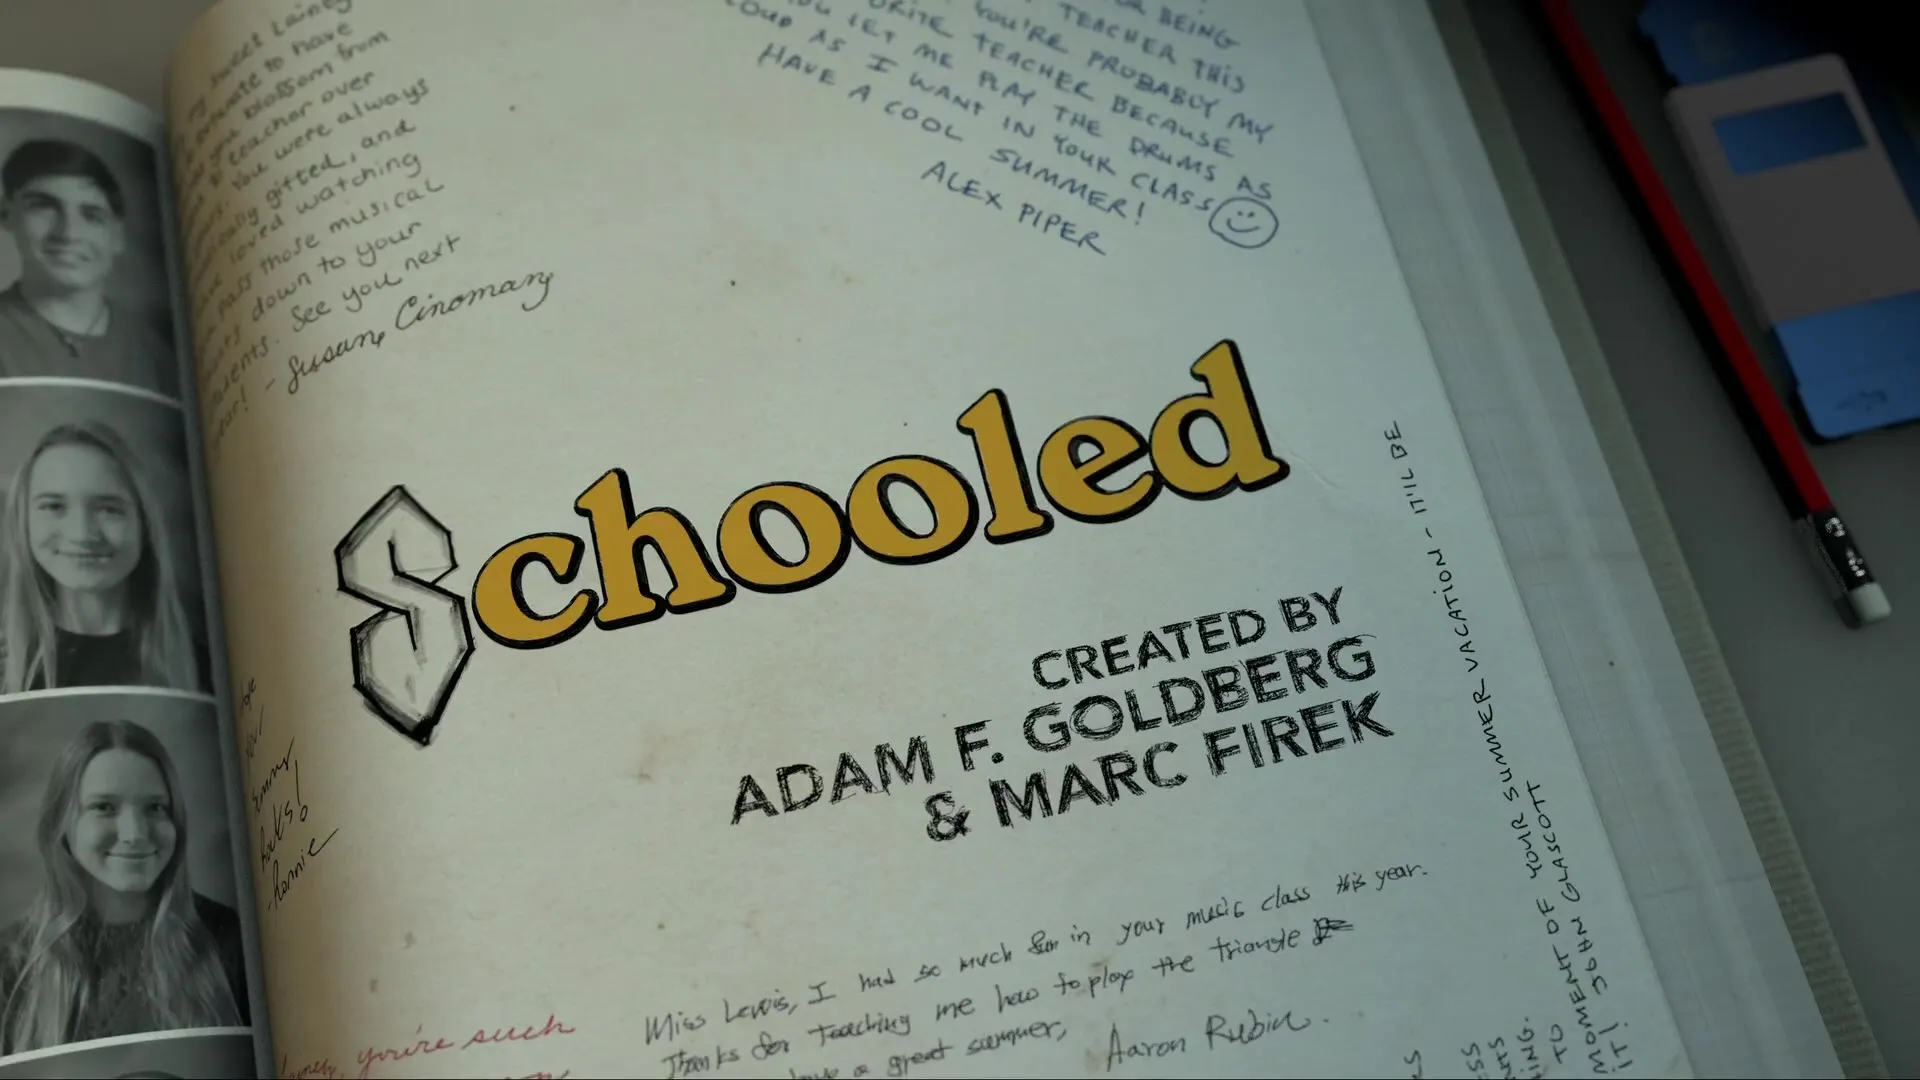 sweet Lainey
to have
you blossom from
teacher over
You were always
gifted, and
loved watching
pass those musical
down to your
See you next
- Susan Cinoman
BEING
TEACHER THIS
YOU'RE PROBABLY MY
TEACHER BECAUSE
LET ME PLAY THE DRUMS AS
AS I WANT IN YOUR CLASS
HAVE A COOL SUMMER!
ALEX PIPER
Schooled
CREATED BY
ADAM F. GOLDBERG
& MARC FIREK
rocks!
-Ronnie
you're such
Miss Lewis, I had so much fun in your music class this year.
Thanks for teaching me how to play the triangle
have a great summer,
Aaron Rubin.
MOMENT OF YOUR SUMMER VACATION - IT'LL BE
IT! JOHN GLASCOTT